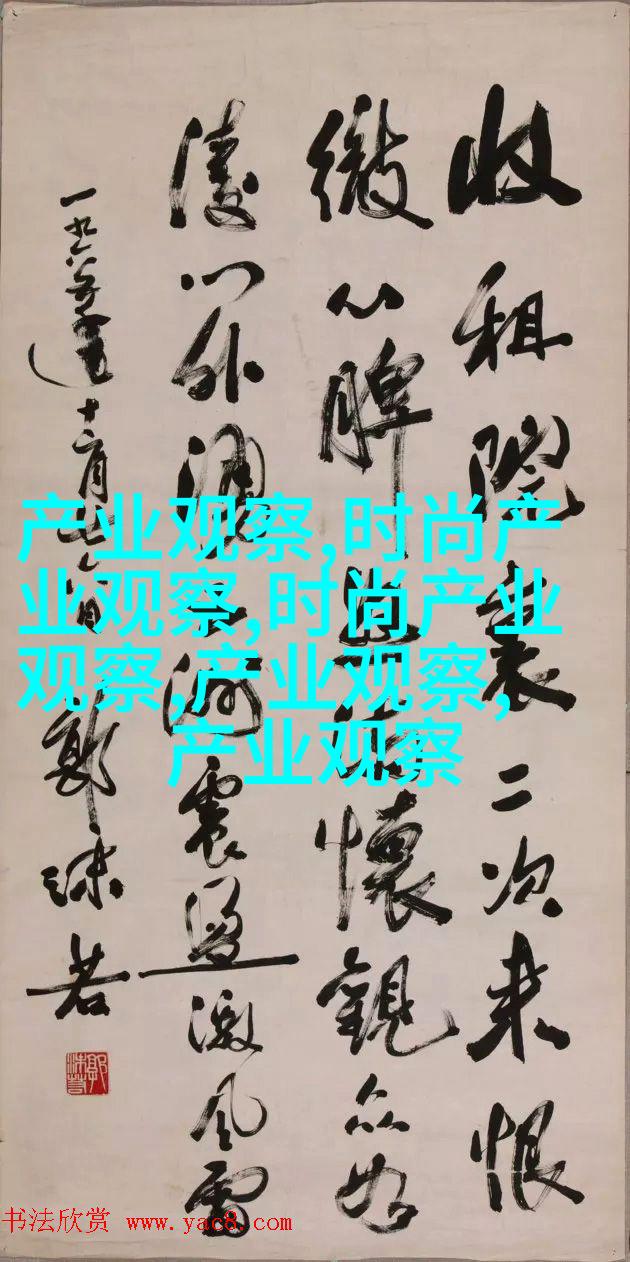 收租院裏二次来恨
心脾懷觀众如
涛门外洲震盪激风雷
郭沫若
产业观察,时尚产
业观察,时尚产业
观察,产业观察,
产业观察
书法欣赏 www.yac8.com